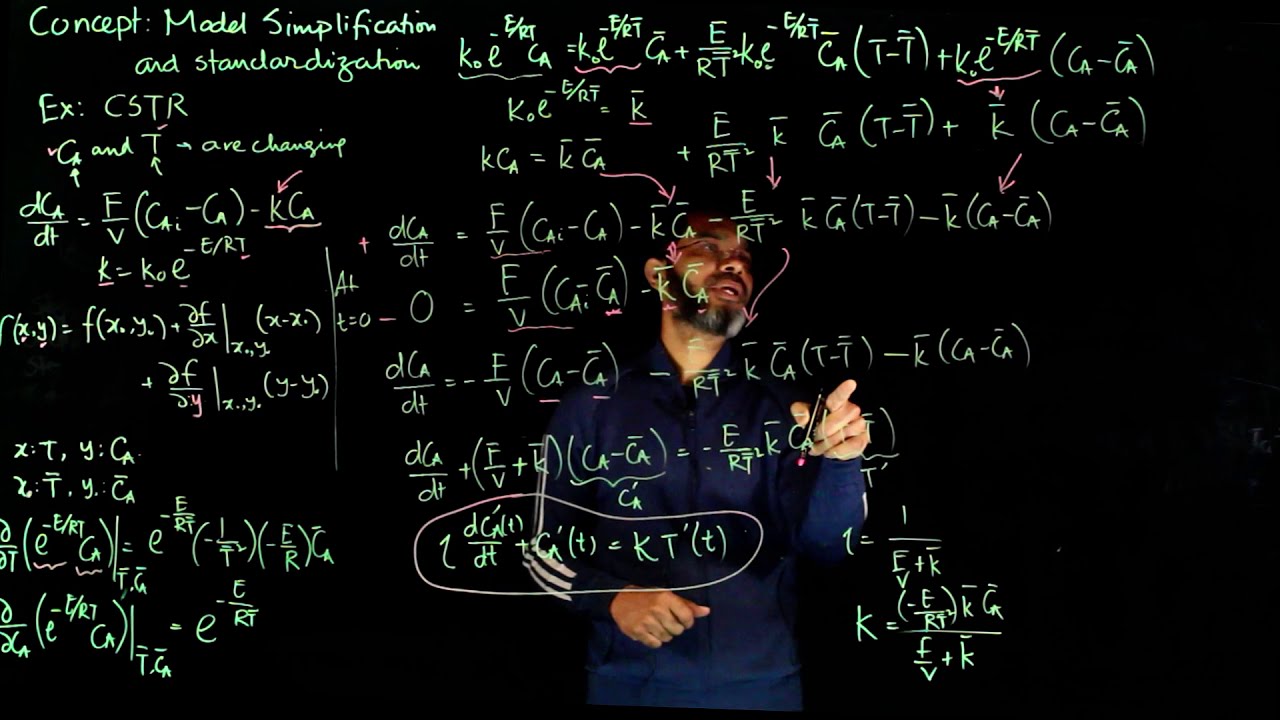 Concept: Model Simplification
and standardization
Ex: CSTR
C_A and T → are changing
dC_A/dt = F/V (C_Ai - C_A) - kC_A
k = k₀e^(-E/RT)
f(x,y) = f(x₀,y₀) + ∂f/∂x |x₀,y₀ (x-x₀)
+ ∂f/∂y |x₀,y₀ (y-y₀)
x: T, y: C_A
x₀: T̄, y₀: C̄_A
∂/∂T (e^(-E/RT) C_A)|T̄,C̄_A = e^(-E/RT̄) (-1/T̄²)(-E/R) C̄_A
∂/∂C_A (e^(-E/RT) C_A)|T̄,C̄_A = e^(-E/RT̄)
k₀e^(-E/RT) C_A = k₀e^(-E/RT̄) C̄_A + E/RT̄² k₀e^(-E/RT̄) C̄_A (T-T̄) + k₀e^(-E/RT̄) (C_A-C̄_A)
k₀e^(-E/RT̄) = k̄
kC_A = k̄ C̄_A + E/RT̄² k̄ C̄_A (T-T̄) + k̄ (C_A-C̄_A)
+ dC_A/dt = F/V (C_Ai-C_A) - k̄C̄_A - E/RT̄² k̄ C̄_A (T-T̄) - k̄(C_A-C̄_A)
At
t=0 - 0 = F/V (C_Ai-C̄_A) - k̄ C̄_A
dC_A/dt = - F/V (C_A-C̄_A) - E/RT̄² k̄ C̄_A (T-T̄) - k̄ (C_A-C̄_A)
dC_A/dt + (F/V + k̄)(C_A-C̄_A) = - E/RT̄² k̄ C̄_A (T-T̄)
C_A' T'
τ dC_A'(t)/dt + C_A'(t) = K T'(t)
τ = 1/(F/V + k̄)
K = (-E/RT̄²) k̄ C̄_A/(F/V + k̄)